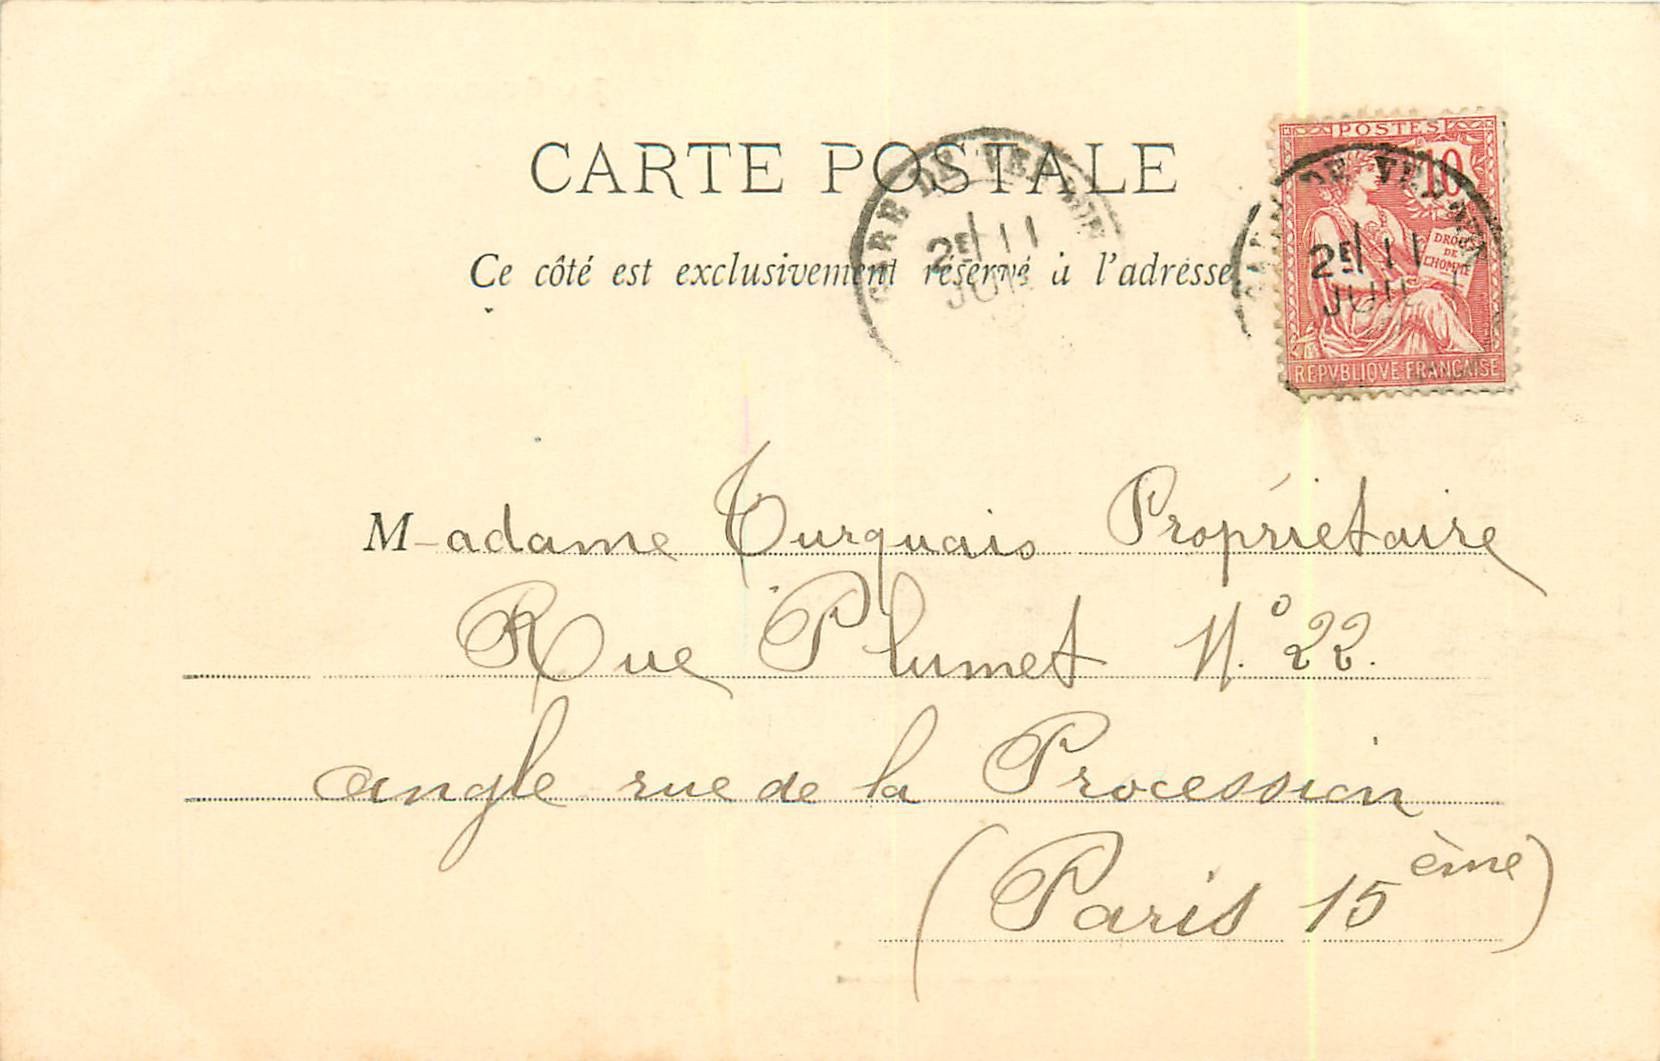 CARTE POSTALE
Ce côté est exclusivement réservé à l'adresse
POSTES
10
DROITS
DE
L'HOMME
REPVBLIQVE FRANÇAISE
GARE DE VERDUN
2E 11
JUIL
GARE DE VERDUN
2E 11
JUIL
Madame Turquais Propriétaire
Rue Plumet N.° 22.
angle rue de la Procession
(Paris 15ème)